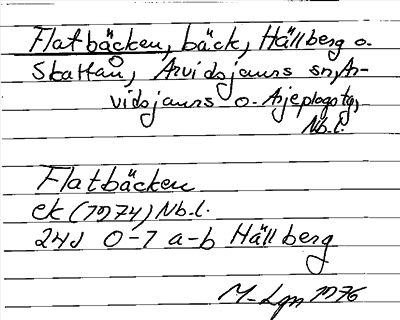 Flatbäcken, bäck, Hällberg o.
Skattån, Arvidsjaurs sn, Ar-
vidsjaurs o. Arjeplogs tg,
Nb.l.
Flatbäcken
ek (1974) Nb.l.
24J 0-1 a-b Hällberg
M-Lgn 1976